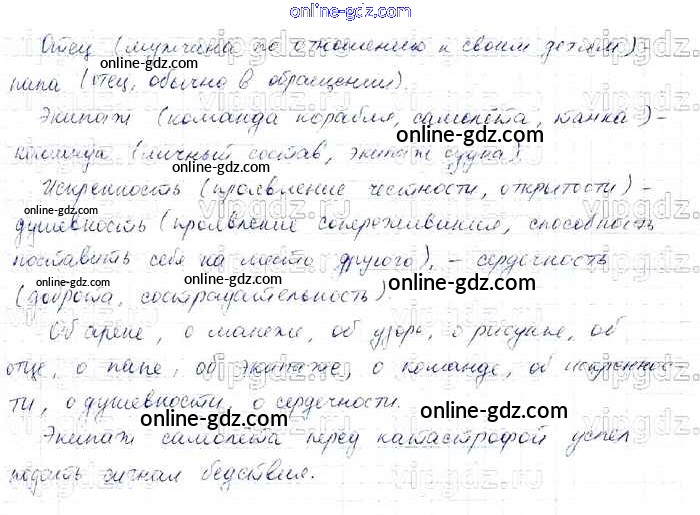 online-gdz.com
Отец (мужчина по отношению к своим детям) -
папа (отец, обычно в обращении).
Экипаж (команда корабля, самолёта, танка) -
команда (личный состав, экипаж судна).
Искренность (проявление честности, открытости) -
душевность (проявление сопереживания, способность
поставить себя на место другого), - сердечность
(доброта, сострадательность).
Об арене, о манеже, об узоре, о рисунке, об
отце, о папе, об экипаже, о команде, об искреннос-
ти, о душевности, о сердечности.
Экипаж самолёта перед катастрофой успел
подать сигнал бедствия.